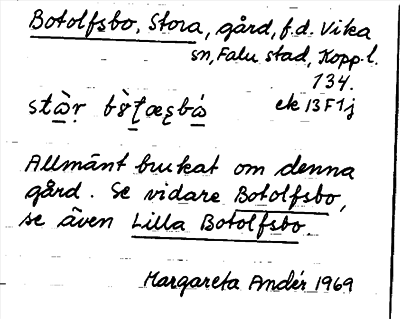 Botolfsbo, Stora, gård, f.d. Vika
sn, Falu stad, Kopp.l.
134.
ek 13F1j
Allmänt brukat om denna
gård. Se vidare Botolfsbo,
se även Lilla Botolfsbo.
Margareta Andér 1969